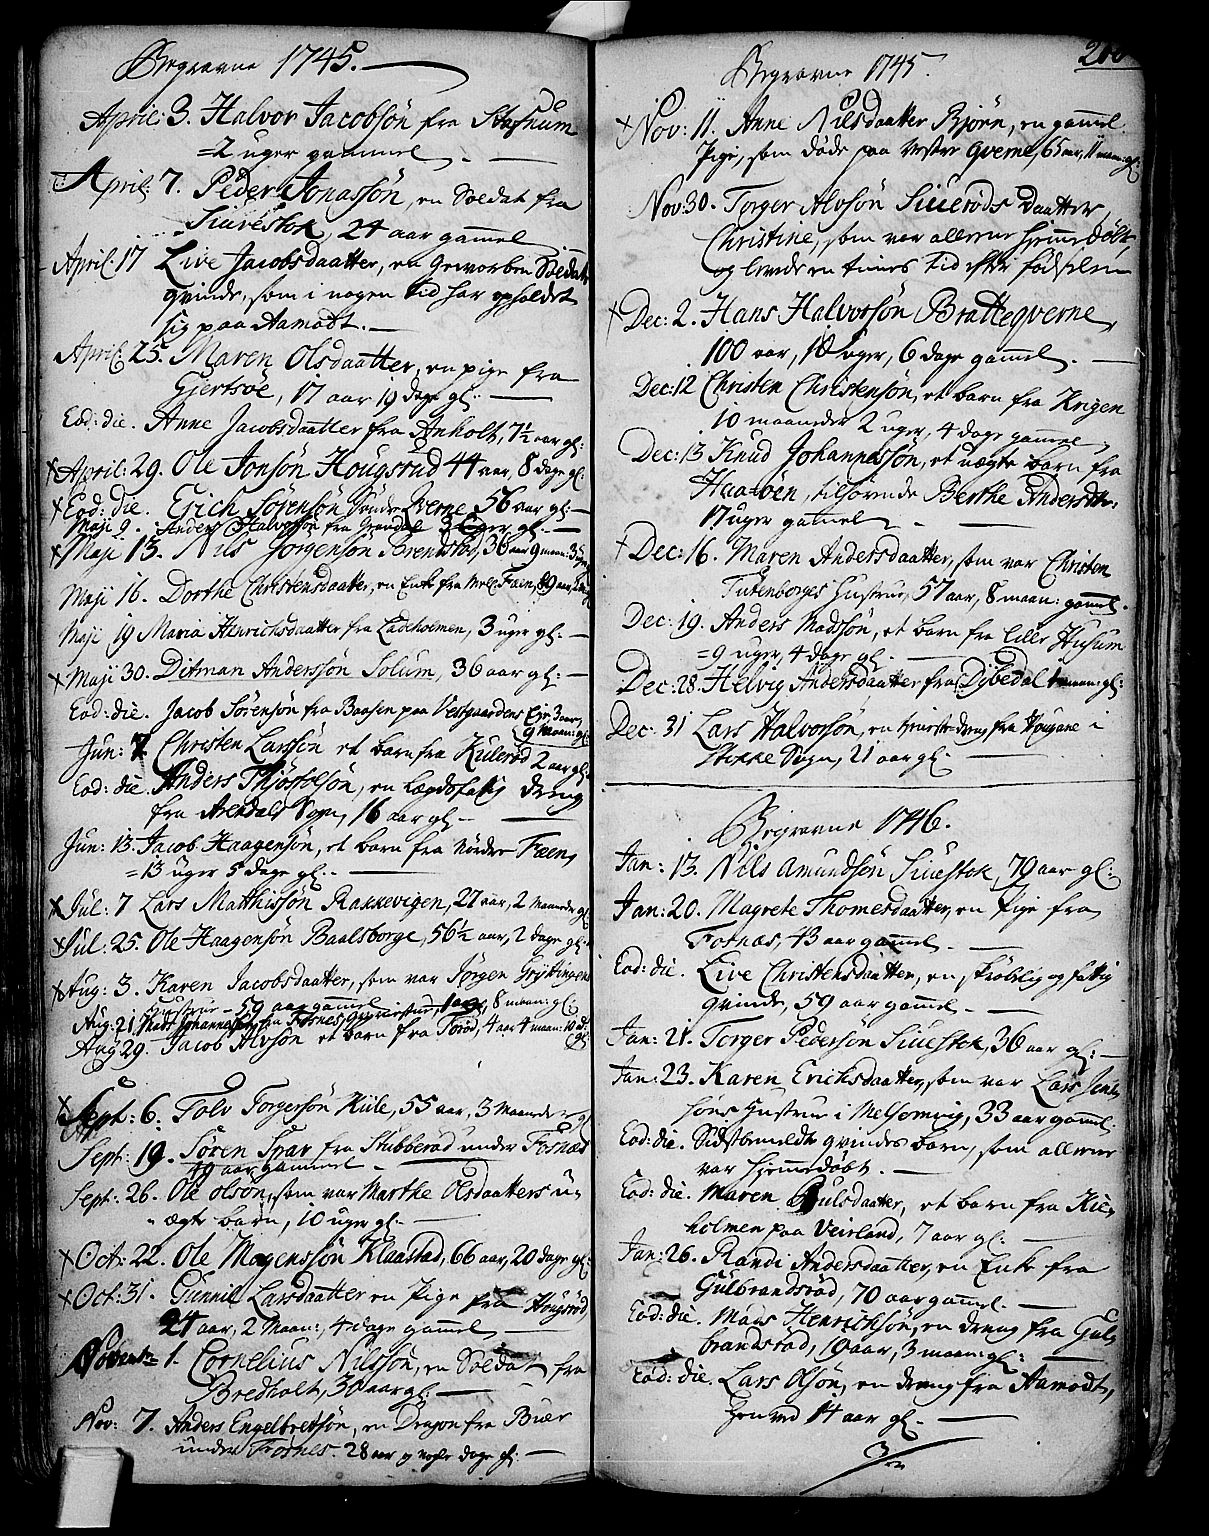 Begravne 1745.
April: 3. Halvor Jacobsøn fra Stafnum
=2 uger gammel. —
April: 7. Peder Jonassøn, en Soldat fra
Siuestok, 24 aar gammel
April: 17 Live Jacobsdaatter, en Geworben Soldat
qvinde, som i nogen tid har opholdet
sig paa Aamodt. —
April: 25. Maren Olsdaatter, en pige fra
Gjertsøe, 17 aar 19 dage gl: —
Eod: die. Anne Jacobsdaatter fra Anholt, 7½ aar gl:
× April: 29. Ole Jonsøn Hougsrud 44 aar, 8 dage gl:
× Eod: die. Erich Sørensøn Søndre Qverne 56 aar gl: —
Maji 9. Anders Halvorsøn fra Grøndal 3 Uger gl: —
× Maji 13. Nils Jørgensøn Brendstad, 36 aar 9 maan: 3
Maji 16. Dorthe Christensdaatter, en Enke fra Mell: Faen, 89 aar
Maji 19 Maria Hinrichsdaatter fra Ladeholmen, 3 uger gl: —
× Maji 30. Ditman Anderssøn Solum, 36 aar gl: —
Eod: die. Jacob Sørensøn fra Baasen paa Vestgaardens Eje 3 aar,
9 Maan: gl:
Jun: 7 Christen Larssøn et barn fra Kulerød 2 aar gl:
Eod: die. Anders Thjøstolsøn, en Lægdsfattig dreng
fra Arendals Sogn, 16 aar gl: —
Jun: 13. Jacob Haagensøn, et barn fra Nordre Faen,
=13 uger 5 dage gl: —
× Jul: 7 Lars Matthissøn Rakkevigen, 27 aar, 2 Maaneder gl
× Jul: 25. Ole Haagensøn Baalsborge, 56½ aar, 2 dage gl:
× Aug: 3. Karen Jacobsdaatter, som var Jørgen Gryttingens
Hustrue — 59 aar gammel
Aug: 21 Mads Johannessøn fra Fornes 8 maan: gl:
Aug 29. Jacob Alvsøn et barn fra Torød, 4 aar 4 maan: 10 d:
gl:
× Sept: 6. Tolv Torgersøn Kiile, 55 aar, 3 Maaneder gl
Sept: 19. Søren Spar fra Stubberød under Fornæs
49 aar gammel —
Sept: 26. Ole Olsøn, som var Marthe Olsdaatters u=
ægte barn, 10 uger gl: —
× Oct: 22. Ole Mogenssøn Klaastad, 66 aar, 20 dage gl:
× Oct: 31. Gunnil Larsdaatter en Pige fra Hougsrød,
24 aar, 2 Maan:, 4 dage gammel —
Novembr: 1. Cornelius Nilssøn, en Soldat fra
Bredholt, 30 aar gl: —
Nov: 7. Anders Engelbretsøn, en Dragon fra Buer
under Fornes. 28 aar og nogle dage gl: —
Begravne 1745.
× Nov: 11. Anne Nilsdaatter Bjørn, en gammel
Pige, som døde paa Vestre Qverne, 65 aar, 11 maan: gl:
Nov: 30. Torger Alvsøn Siuerøds daatter
Christine, som var allene hjemmedøbt,
og levede en times tid efter fødselen
× Dec: 2. Hans Halvorsøn Bratteqverne,
100 aar, 10 uger, 6 dage gammel. —
Dec: 12 Christen Christensøn, et barn fra Krigen
10 maaneder 2 uger, 4 dage gammel
Dec: 13 Knud Johannessøn, et uægte barn fra
Haasøen, tilhørende Berthe Andersdtr:
17 uger gamel —
× Dec: 16. Maren Andersdaatter, som var Christen
Tutenborgs Hustrue, 57 aar, 8 maan: gammel.
Dec: 19. Anders Madssøn, et barn fra Lille Husum
=9 uger, 4 dage gl: —
Dec: 28. Helvig Andersdaatter fra Dybedal 1 maan: gl:
Dec: 31 Lars Halvorsøn, en tieneste dreng fra Hougane i
Stokke Sogn, 21 aar gl: —
Begravne 1746.
Jan: 13. Nils Amundsøn Siuestok, 79 aar gl:
Jan: 20. Magrete Thomesdaatter, en Pige fra
Fornæs, 43 aar gammel. —
Eod: die. Live Christensdaatter, en skrøbelig og fattig
qvinde, 59 aar gammel. —
Jan: 21. Torger Pedersøn Siuestok, 36 aar gl: —
Jan: 23. Karen Erichsdaatter, som var Lars Jen=
søns Hustrue i Melsomvig, 33 aar gammel.
Eod: die. Sidstbemeldte qvindes barn, som allene
var hjemmedøbt. —
Eod: die. Maren Poulsdaatter, et barn fra Kie=
holmen paa Veierland, 7 aar gl: —
Jan: 26. Randi Andersdaatter, en Enke fra
Gulbrandsrød, 70 aar gammel. —
Eod: die. Mads Henrichsøn, en dreng fra Gul=
brandsrød, 19 aar, 3 maan: gl: —
Eod: die. Lars Olsøn, en dreng fra Aamodt,
henved 14 aar gl: —